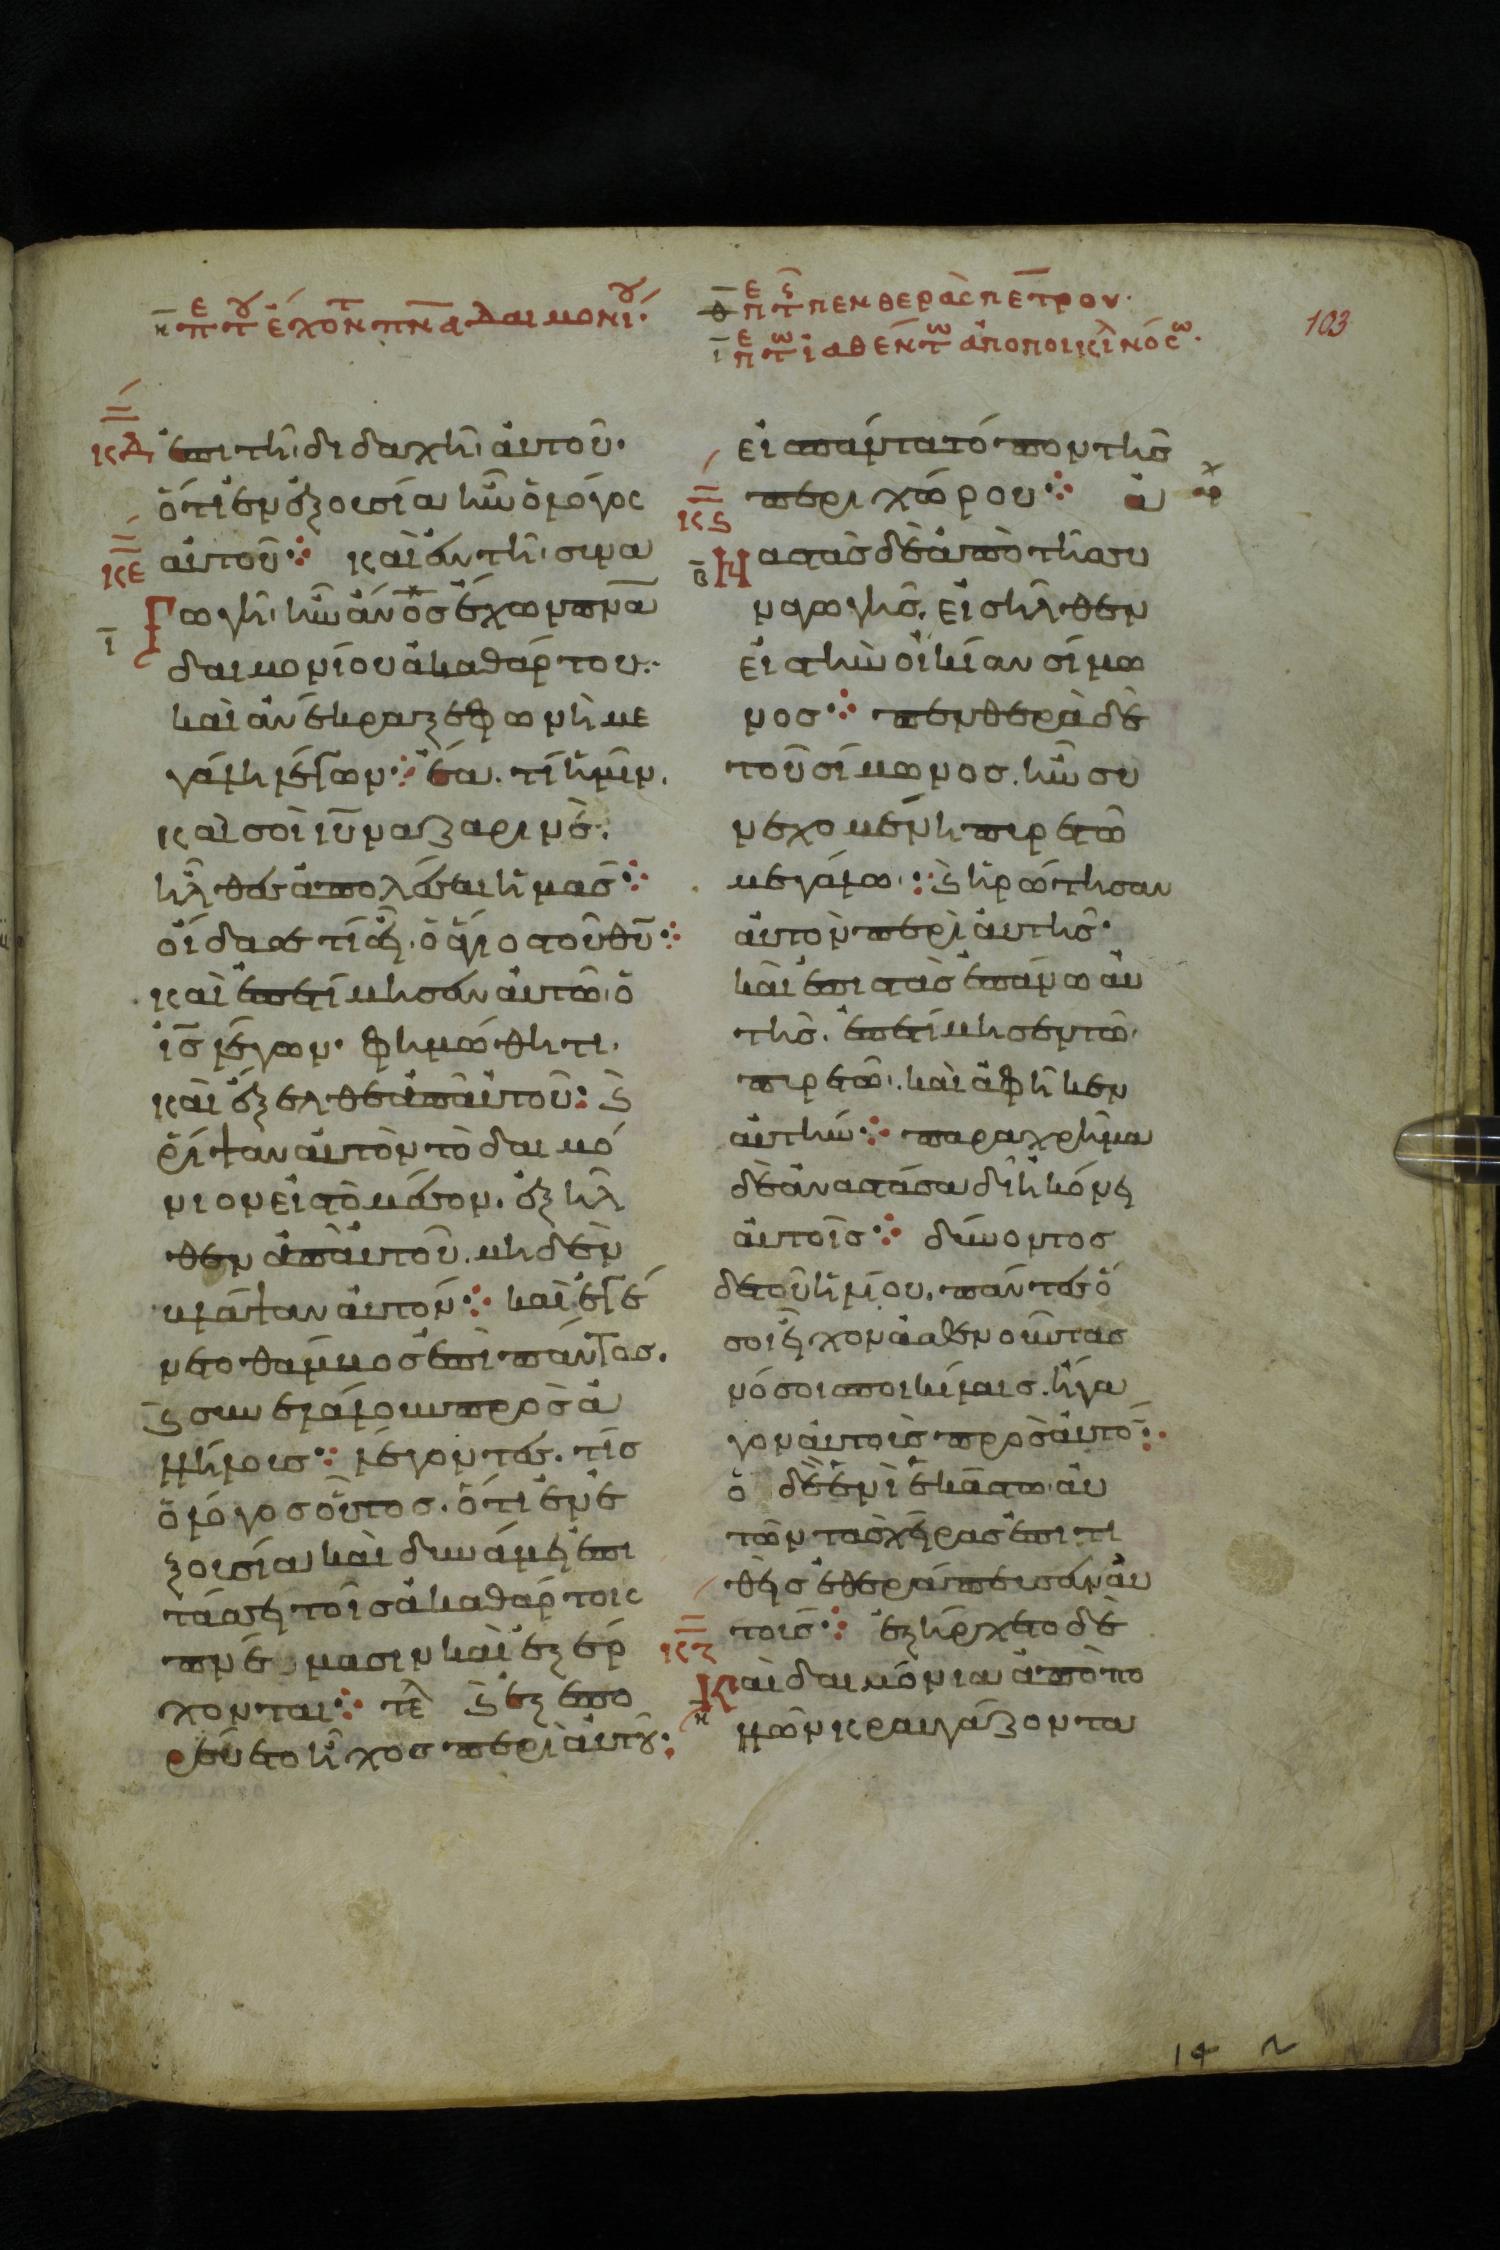 η πε τοῦ ἔχοντ πνα δαιμονίου.
θ πε τς πενθερὰς πέτρου.
ι πε τω ἰαθέντω ἀπο ποικίλ νόσω.
103
κδ ἐπι τῆ διδαχῆ αὐτοῦ·
ὅτι ἐν ἐξουσία ἦν ὁ λόγος
κε αὐτοῦ· και ἐν τῆ συνα
ι γωγῆ ἦν ἄνος ἔχων πνα
δαιμονίου ἀκαθάρτου·
και ἀνέκραξε φωνῆ με
γάλη λέγων· ἔα. τί ἡμῖν.
και σοὶ ιυ ναζαρινέ.
ἦλθες ἀπολέσαι ἡμας·
οἶδα σε τίς εἶ ὁ ἅγιος τοῦ θυ·
και ἐπετίμησεν αὐτῶ ὁ
ις λέγων· φιμώθητι.
και ἔξελθε ἀπ αὐτοῦ· ϗ
ῥίψαν αὐτὸν τὸ δαιμό
νιον εἰς τὸ μέσον. ἐξῆλ
θεν ἀπ αὐτοῦ. μηδὲν
βλάψαν αὐτον· και ἐγέ
νετο θάμβος ἐπὶ πάντας.
ϗ συνελάλουν προς ἀ
λλήλους· λέγοντες. τίς
ὁ λόγος οὗτος. ὅτι ἐν ἐ
ξουσία και δυνάμει ἐπι
τάσσει τοῖς ἀκαθάρτοις
πνεύμασιν και ἐξέρ
χονται· τελ ϗ ἐξεπο
ρεύετο ἦχος περὶ αὐτου·
εἰς πάντα τόπον τῆς
κς περιχώρου· ἀρχ
β ἀναστὰς δὲ ἀπὸ τῆς συ
ναγωγῆς. εἰσῆλθεν
εἰς τὴν οἰκίαν σίμω
νος· πενθερὰ δὲ
τοῦ σίμωνος. ἦν συ
νεχομένη πυρετῶ
μεγάλω· ϗ ἠρώτησαν
αὐτὸν περὶ αὐτῆς·
και ἐπιστὰς ἐπάνω αὐ
τῆς. ἐπετίμησεν τῶ
πυρετῶ. και ἀφῆκεν
αὐτὴν· παραχρῆμα
δὲ ἀναστάσα διηκόνει
αὐτοῖς· δύνοντος
δὲ τοῦ ἡλίου. πάντες ὅ
σοι εἶχον ἀσθενοῦντας
νόσοις ποικίλαις. ἤγα
γον αὐτοὺς προς αὐτόν·
ὁ δὲ ἑνὶ ἑκάστω αὐ
τῶν τας χεῖρας ἐπιτι
θεὶς ἐθεράπευσεν αὐ
κζ τους· ἐξήρχετο δὲ
η Και δαιμόνια ἀπὸ πο
λλῶν κραυγάζοντα
14